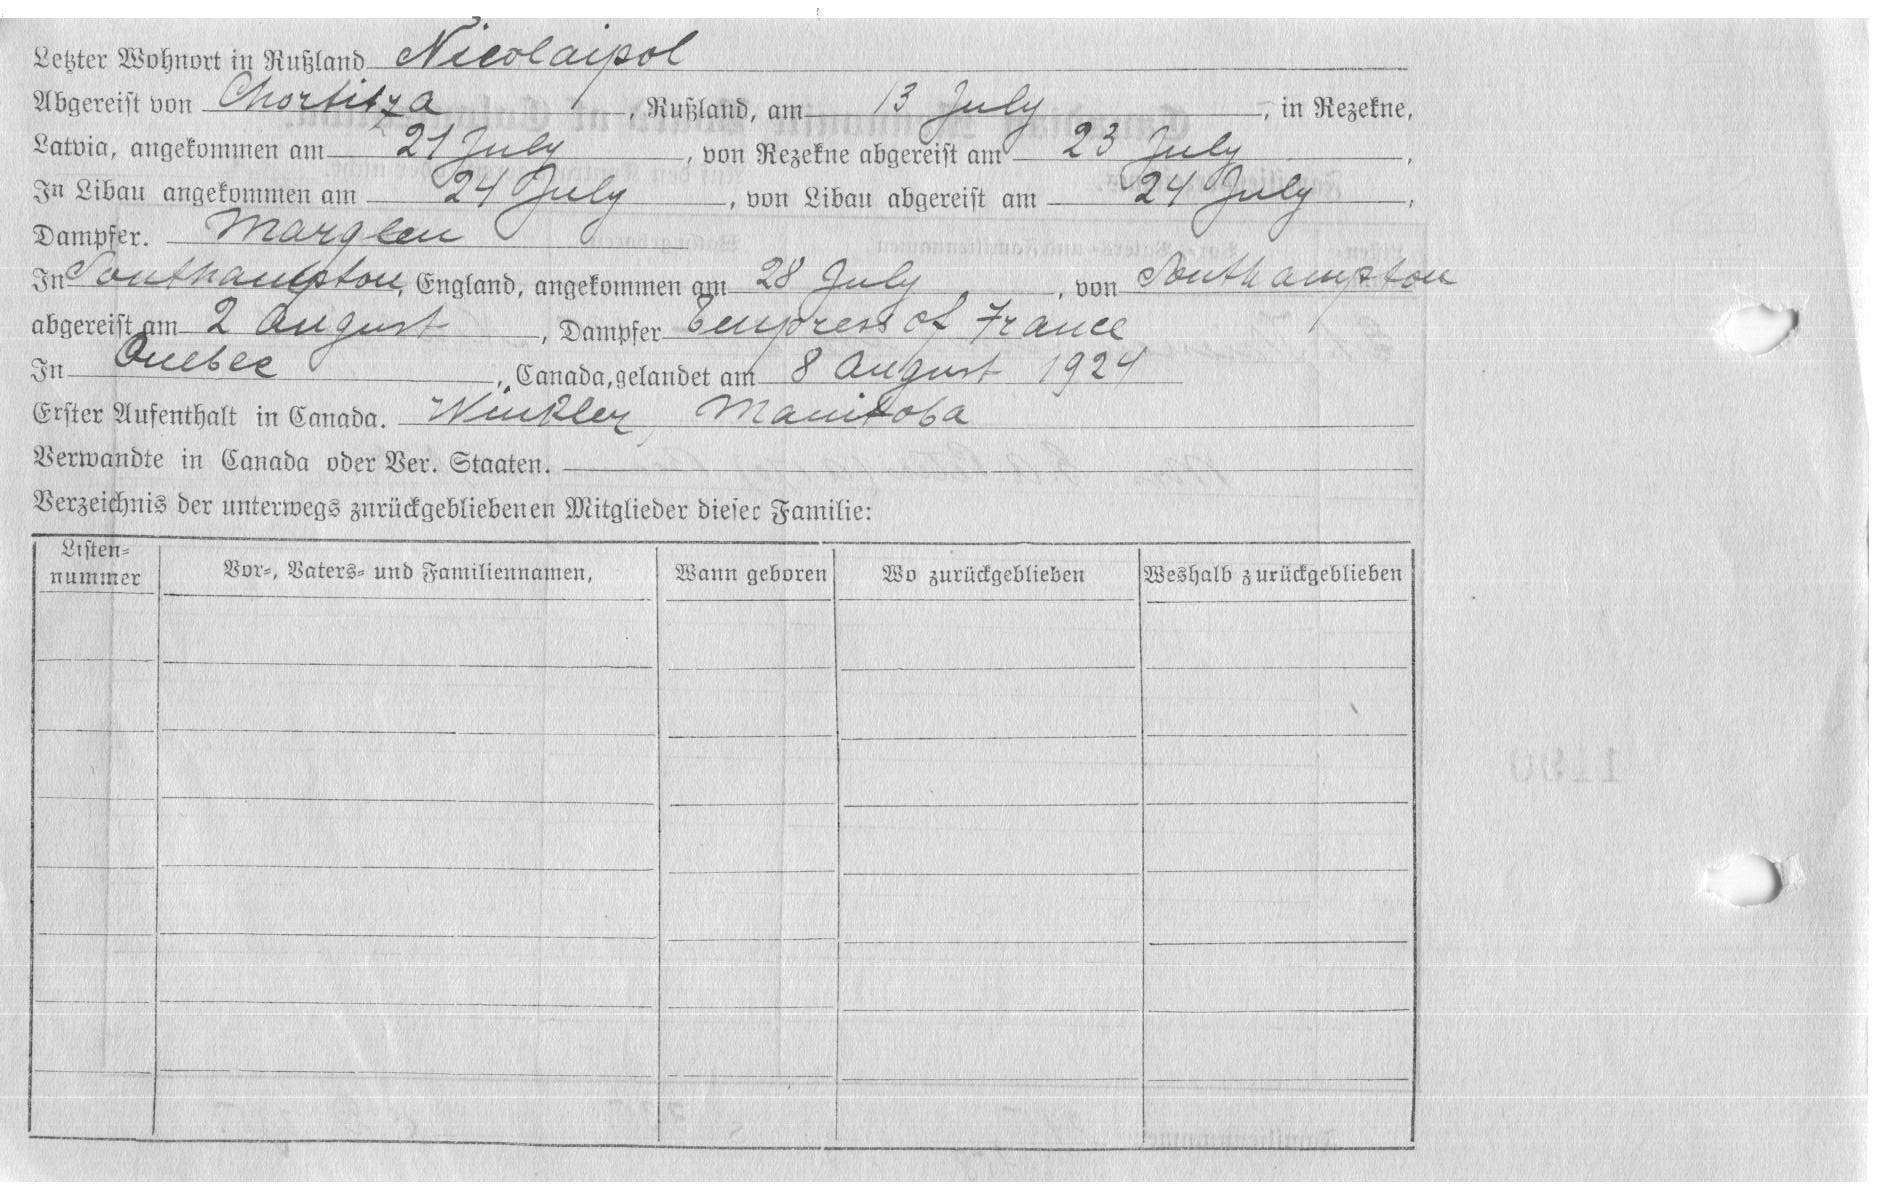 Letzter Wohnort in Rußland Nicolaipol
Abgereist von Chortitza, Rußland, am 13 July, in Rezekne,
Latvia, angekommen am 21 July, von Rezekne abgereist am 23 July,
In Libau angekommen am 24 July, von Libau abgereist am 24 July,
Dampfer. Marglen
In Southampton, England, angekommen am 28 July, von Southampton
abgereist am 2 August, Dampfer Empress of France
In Quebec, Canada, gelandet am 8 August 1924
Erster Aufenthalt in Canada. Winkler, Manitoba
Verwandte in Canada oder Ver. Staaten.
Verzeichnis der unterwegs zurückgebliebenen Mitglieder dieser Familie:
Listen-
nummer Vor-, Vaters- und Familiennamen, Wann geboren Wo zurückgeblieben Weshalb zurückgeblieben
1190